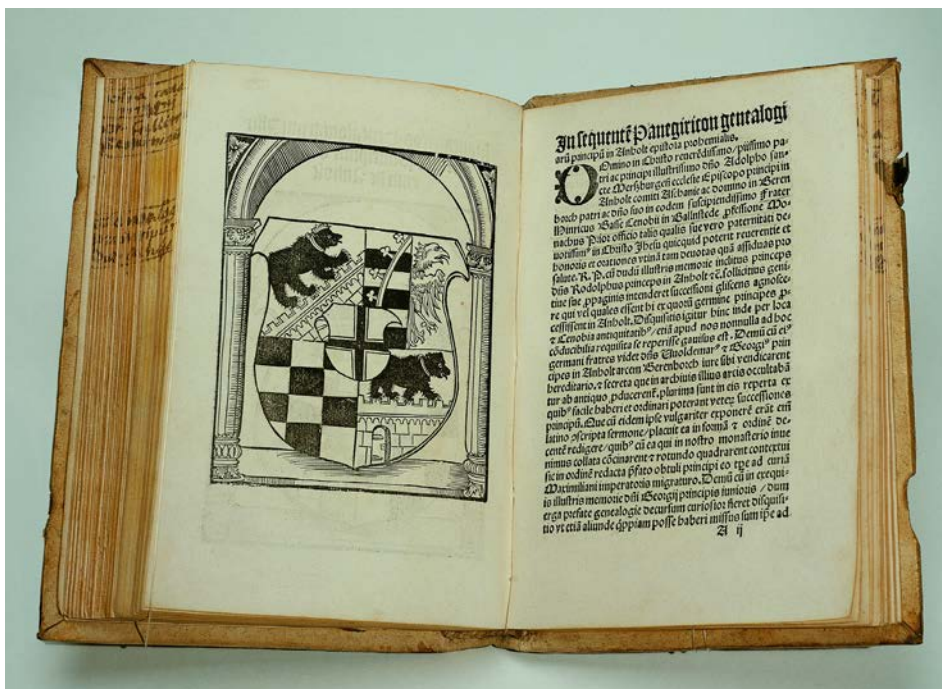 In sequentē Panegiricon genealogi
arū principū in Anholt epistola prohemialis.
Omino in Christo reuerēdissimo/piissimo pa-
tri ac principi illustrissimo dño Adolpho san-
cte Merßburgeñ ecclesie Episcopo principi in
Anholt comiti Ascanie ac domino in Beren
borch patri ac dño suo in eodem suscipiendissimo Frater
Hinricus Basse Cenobij in Ballenstede ꝓfessione Mo-
nachus Prior officio talis qualis sue vero paternitati de-
uotissimꝰ in Christo Jhesu quicquid poterit reuerentie et
honoris et orationes vtinā tam deuotas quā assiduas pro
salute. R. P. cū dudū illustris memorie inclitus princeps
dñs Rodolphus princeps in Anholt ⁊c̄. sollicitus geni-
tiue sue ꝓpaginis intenderet successioni gliscens agnosce-
re qui vel quales essent hi ex quorū germine principes ꝓ-
cessissent in Anholt. Disquisitis igitur hinc inde per loca
⁊ Cenobia antiquitatibꝰ/etiā apud nos nonnulla ad hoc
cōducibilia requisita se reperisse gauisus est. Demū cū eiꝰ
germani fratres videt dñs Wuoldemarꝰ ⁊ Georgiꝰ prin
cipes in Anholt arcem Berenborch iure sibi vendicarent
hereditario. ⁊ secreta que in archiuis illius arcis occultabā
tur ab antiquo ꝓducerent. plurima sunt in eis reperta ex
quibꝰ facile haberi et ordinari poterant veteꝝ successiones
principū. Que cū eidem ipse vulgariter exponerē erāt em̄
latino ꝯscripta sermone/placuit ea in formā ⁊ ordinē de-
centē redigere/quibꝰ cū ea qui in nostro monasterio inue
nimus collata cōcinarent ⁊ rotundo quadrarent contextui
sic in ordinē redacta p̄fato obtuli principi eo tꝑe ad curiā
Maximiliani imperatoris migraturo. Demū cū in exequi-
is illustris memorie dñi Georgij principis iunioris/dum
erga prefate genealogie decursum curiosior fieret disquisi-
tio vt etiā aliunde q̇ppiam posse haberi missus sum ip̄e ad
A ij